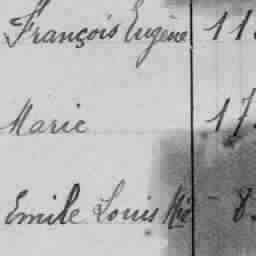 François Eugène 11
Marie 17
Emile Louis 8